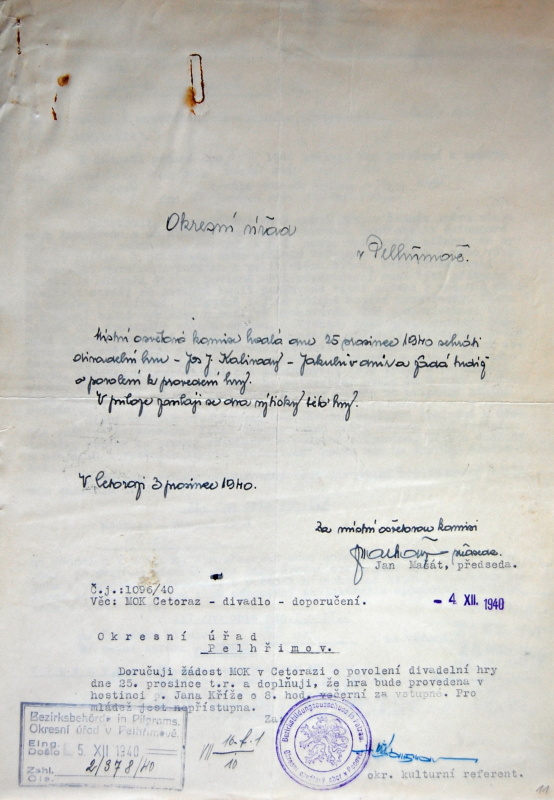 Okresní úřad
v Pelhřimově.
Místní osvětová komise hodlá dne 25 prosince 1940 sehráti
divadelní hru - Jos J. Kalinady - a žádá tudíž
o povolení k provedení hry.
V příloze zasílají se dva výtisky této hry.
V Cetorazi 3 prosince 1940.
Za místní osvětovou komisi
Jan Mašát, předseda.
Č.j.:1096/40
Věc: MOK Cetoraz - divadlo - doporučení.
- 4 XII. 1940
Okresní úřad
Pelhřimov.
Doručuji žádost MOK v Cetorazi o povolení divadelní hry
dne 25. prosince t.r. a doplňuji, že hra bude provedena v
hostinci p. Jana Kříže o 8. hod. večerní za vstupné. Pro
mládež jest nepřístupna.
Za
Bezirksbehörde in Pilgrams.
Okresní úřad v Pelhřimově.
Eing.
Došlo 5. XII 1940
Zahl.
Čís. 2/378/40
VII
10
okr. kulturní referent.
11